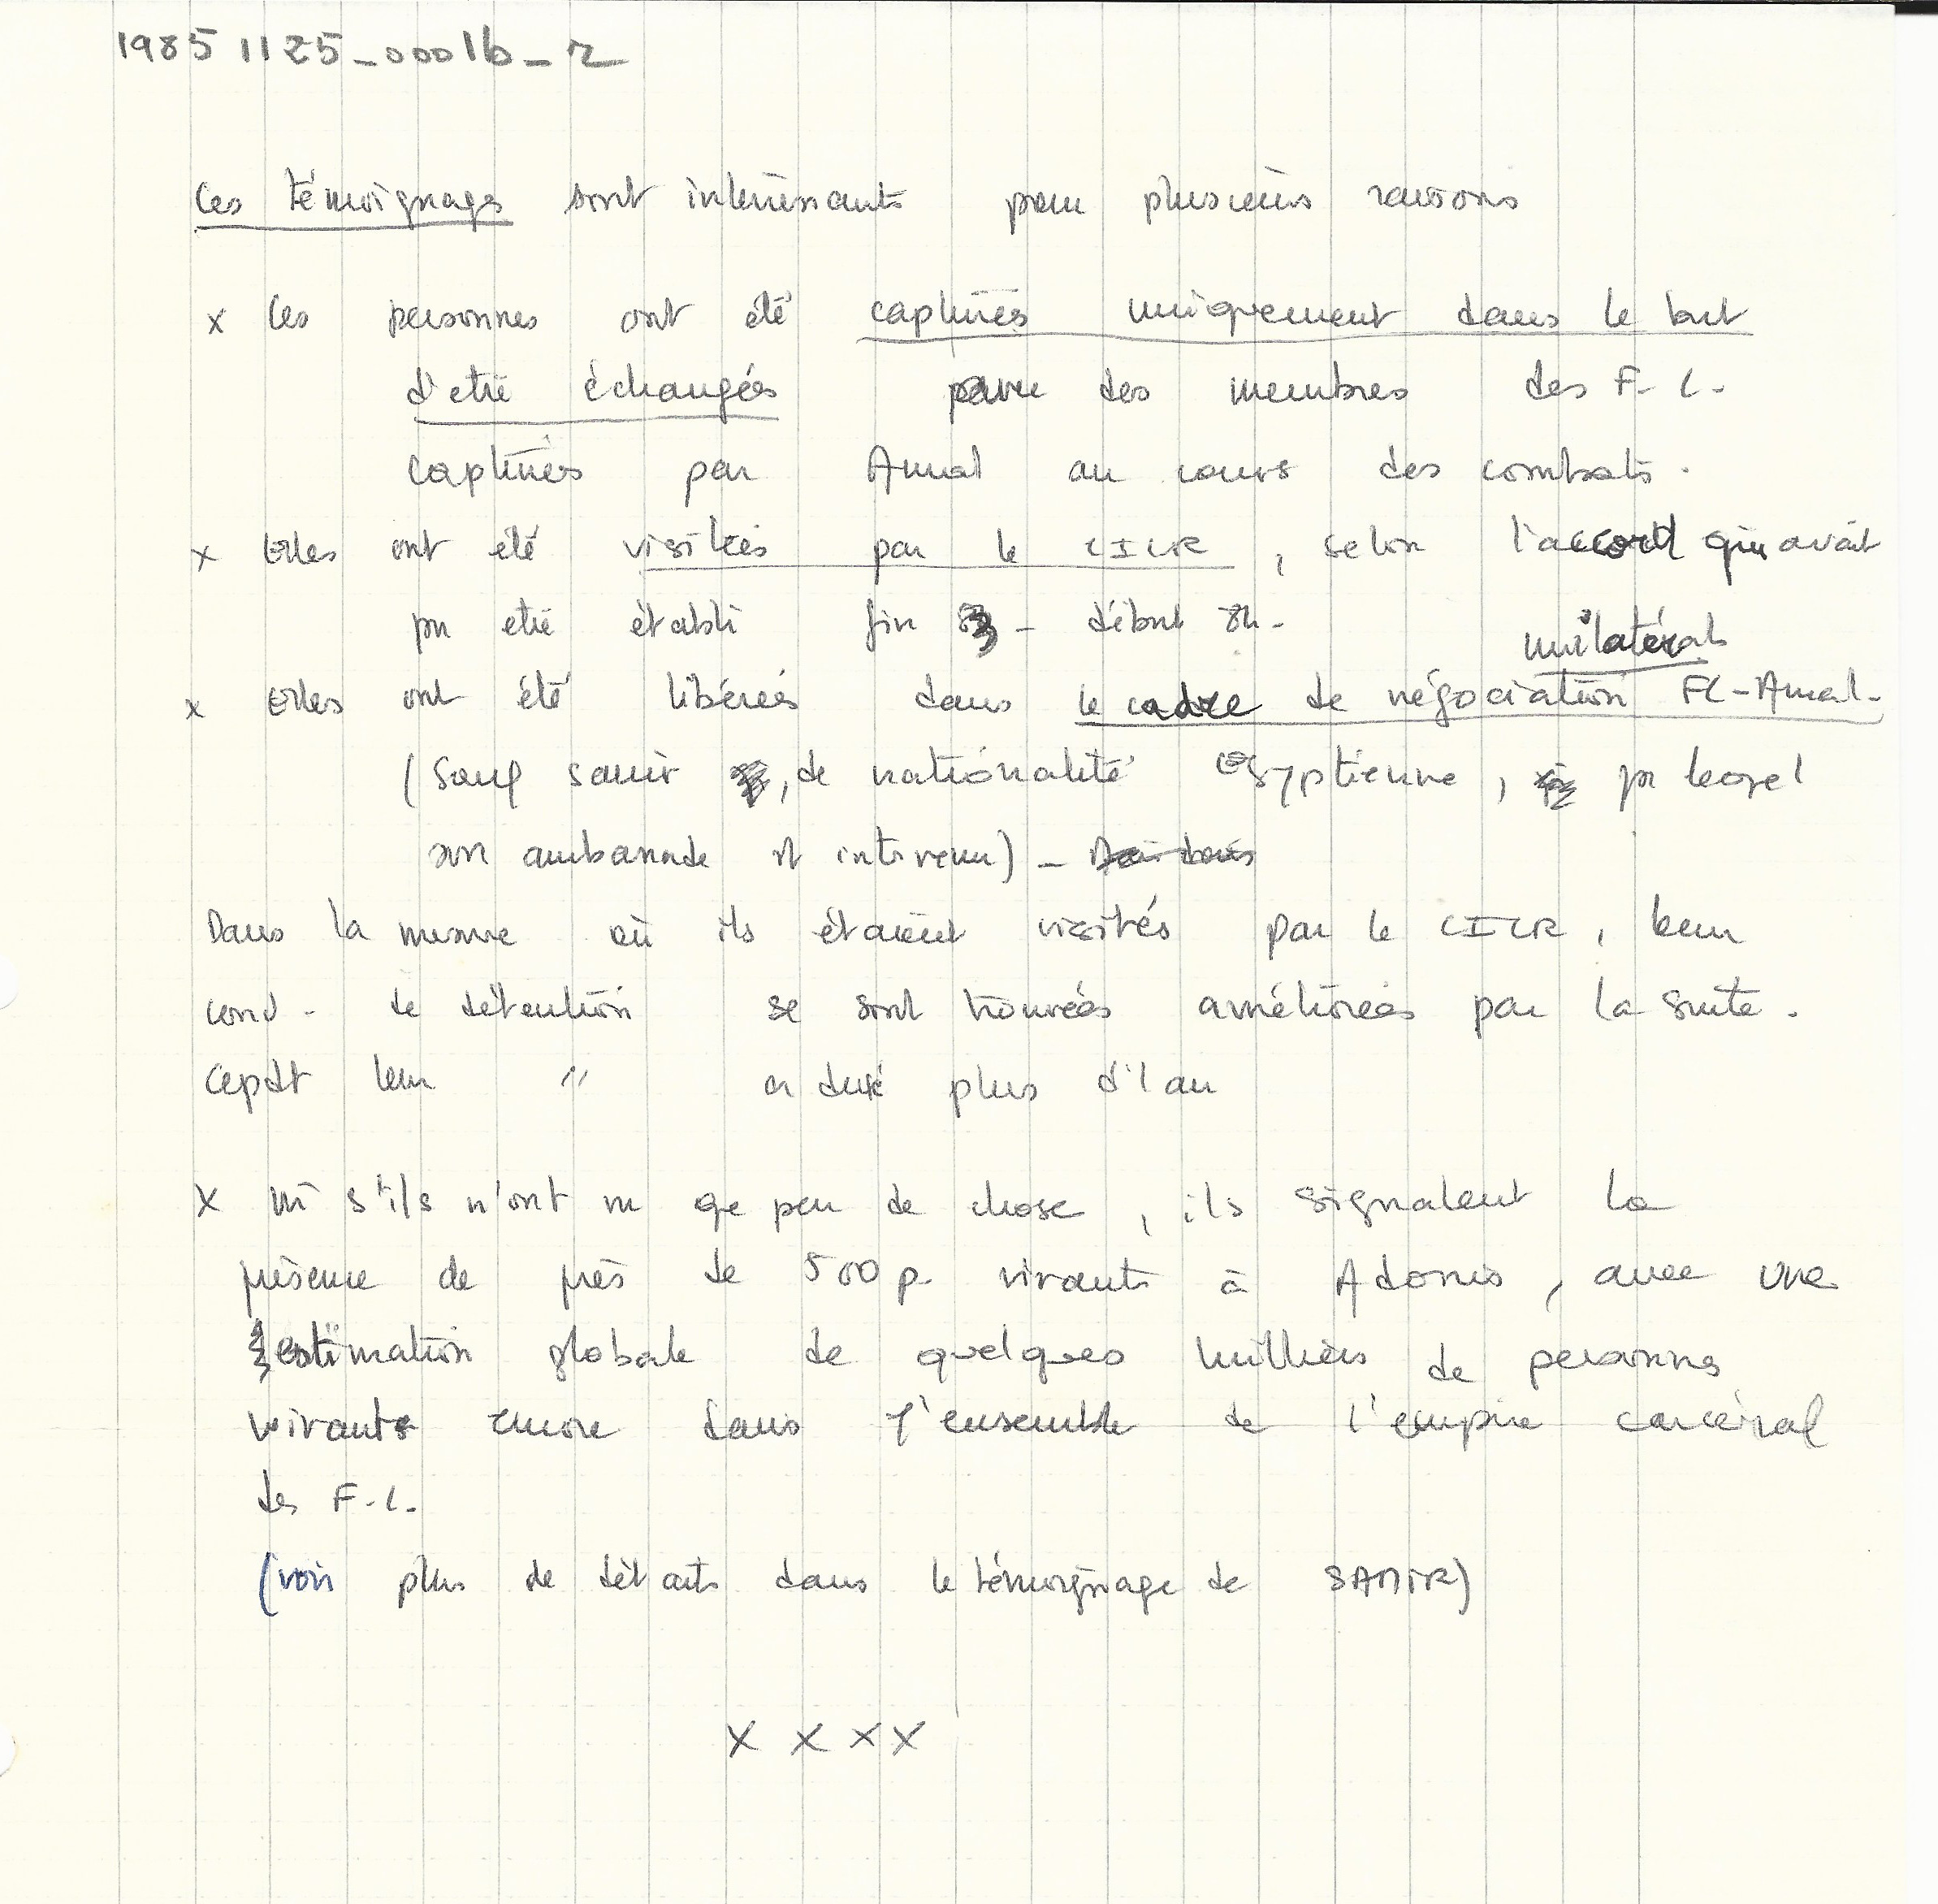 19851125_0001b_r
Ces témoignages sont intéressants pour plusieurs raisons
x Ces personnes ont été capturées uniquement dans le but
d'etre échangés pour des membres des F.L.
capturés par Amal au cours des combats.
x Elles ont été visitées par le CICR, selon l'accord qui avait
pu etre établi fin 83 - début 84.
unilatérale
x Elles ont été libérées dans le cadre de négociation FL-Amal.
(Sauf Samir, de nationalité egyptienne, pr leqel
son ambassade est intervenu) -
Dans la mesure où ils étaient visités par le CICR, leur
cond. de détention se sont trouvées améliorées par la suite.
Cepdt leur " a duré plus d'1 an
x m s'ils n'ont vu qe peu de chose, ils signalent la
présence de près de 500 p. vivants à Adonis, avec une
estimation globale de quelques milliers de personnes
vivants encore dans l'ensemble de l'empire carcéral
des F.L.
(voir plus de détails dans le témoignage de SAMIR)
x x x x